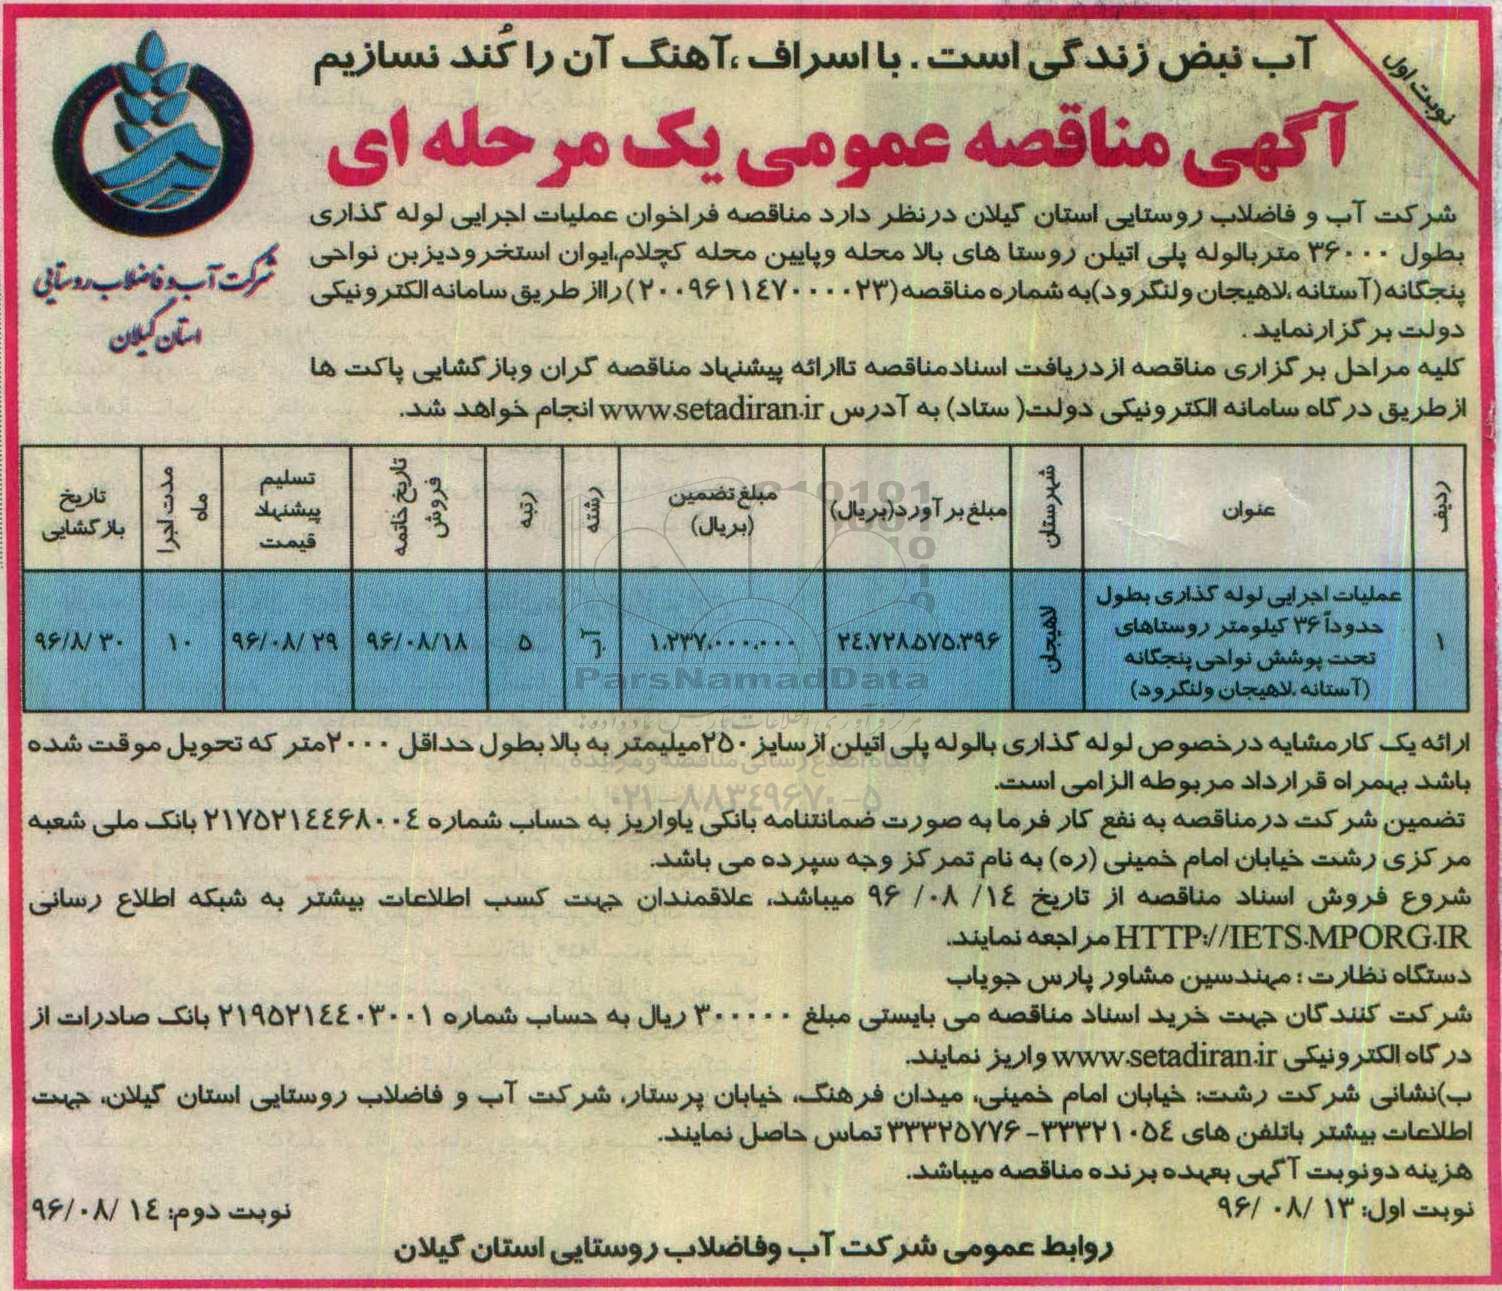 نوبت اول
آب نبض زندگی است . با اسراف ،آهنگ آن را کُند نسازیم
آگهی مناقصه عمومی یک مرحله ای
شرکت آب و فاضلاب روستایی
استان گیلان
شرکت آب و فاضلاب روستایی استان گیلان درنظر دارد مناقصه فراخوان عملیات اجرایی لوله گذاری
بطول ۳۶۰۰۰ متربالوله پلی اتیلن روستا های بالا محله وپایین محله کچلام،ایوان استخرودیزبن نواحی
پنجگانه(آستانه ،لاهیجان ولنگرود)به شماره مناقصه(۲۰۰۹۶۱۱۴۷۰۰۰۰۲۳) رااز طریق سامانه الکترونیکی
دولت برگزارنماید .
کلیه مراحل برگزاری مناقصه ازدریافت اسنادمناقصه تاارائه پیشنهاد مناقصه گران وبازگشایی پاکت ها
ازطریق درگاه سامانه الکترونیکی دولت( ستاد) به آدرس www.setadiran.ir انجام خواهد شد.
ردیف عنوان شهرستان مبلغ برآورد(بریال) مبلغ تضمین (بریال) رشته رتبه تاریخ خاتمه فروش تسلیم پیشنهاد قیمت مدت اجرا ماه تاریخ بازگشایی
۱ عملیات اجرایی لوله گذاری بطول
حدوداً ۳۶ کیلومتر روستاهای
تحت پوشش نواحی پنجگانه
(آستانه ،لاهیجان ولنگرود)
لاهیجان ۲۴،۷۲۸،۵۷۵،۳۹۶ ۱،۲۳۷،۰۰۰،۰۰۰ آب ۵ ۹۶/۰۸/۱۸ ۹۶/۰۸/ ۲۹ ۱۰ ۹۶/۸/ ۳۰
ParsNamadData
۰۲۱-۸۸۳۴۹۶۷۰-۵
ارائه یک کارمشابه درخصوص لوله گذاری بالوله پلی اتیلن ازسایز ۲۵۰میلیمتر به بالا بطول حداقل ۲۰۰۰متر که تحویل موقت شده
باشد بهمراه قرارداد مربوطه الزامی است.
تضمین شرکت درمناقصه به نفع کار فرما به صورت ضمانتنامه بانکی یاواریز به حساب شماره ۲۱۷۵۲۱۴۴۶۸۰۰۴ بانک ملی شعبه
مرکزی رشت خیابان امام خمینی (ره) به نام تمرکز وجه سپرده می باشد.
شروع فروش اسناد مناقصه از تاریخ ۱۴/ ۰۸/ ۹۶ میباشد، علاقمندان جهت کسب اطلاعات بیشتر به شبکه اطلاع رسانی
HTTP://IETS.MPORG.IR مراجعه نمایند.
دستگاه نظارت : مهندسین مشاور پارس جویاب
شرکت کنندگان جهت خرید اسناد مناقصه می بایستی مبلغ ۳۰۰۰۰۰ ریال به حساب شماره ۲۱۹۵۲۱۴۴۰۳۰۰۱ بانک صادرات از
درگاه الکترونیکی www.setadiran.ir واریز نمایند.
ب)نشانی شرکت رشت: خیابان امام خمینی، میدان فرهنگ، خیابان پرستار، شرکت آب و فاضلاب روستایی استان گیلان، جهت
اطلاعات بیشتر باتلفن های ۳۳۳۲۱۰۵۴- ۳۳۳۲۵۷۷۶ تماس حاصل نمایند.
هزینه دونوبت آگهی بعهده برنده مناقصه میباشد.
نوبت اول: ۱۳ /۰۸ /۹۶
نوبت دوم: ۱۴ /۹۶/۰۸
روابط عمومی شرکت آب وفاضلاب روستایی استان گیلان